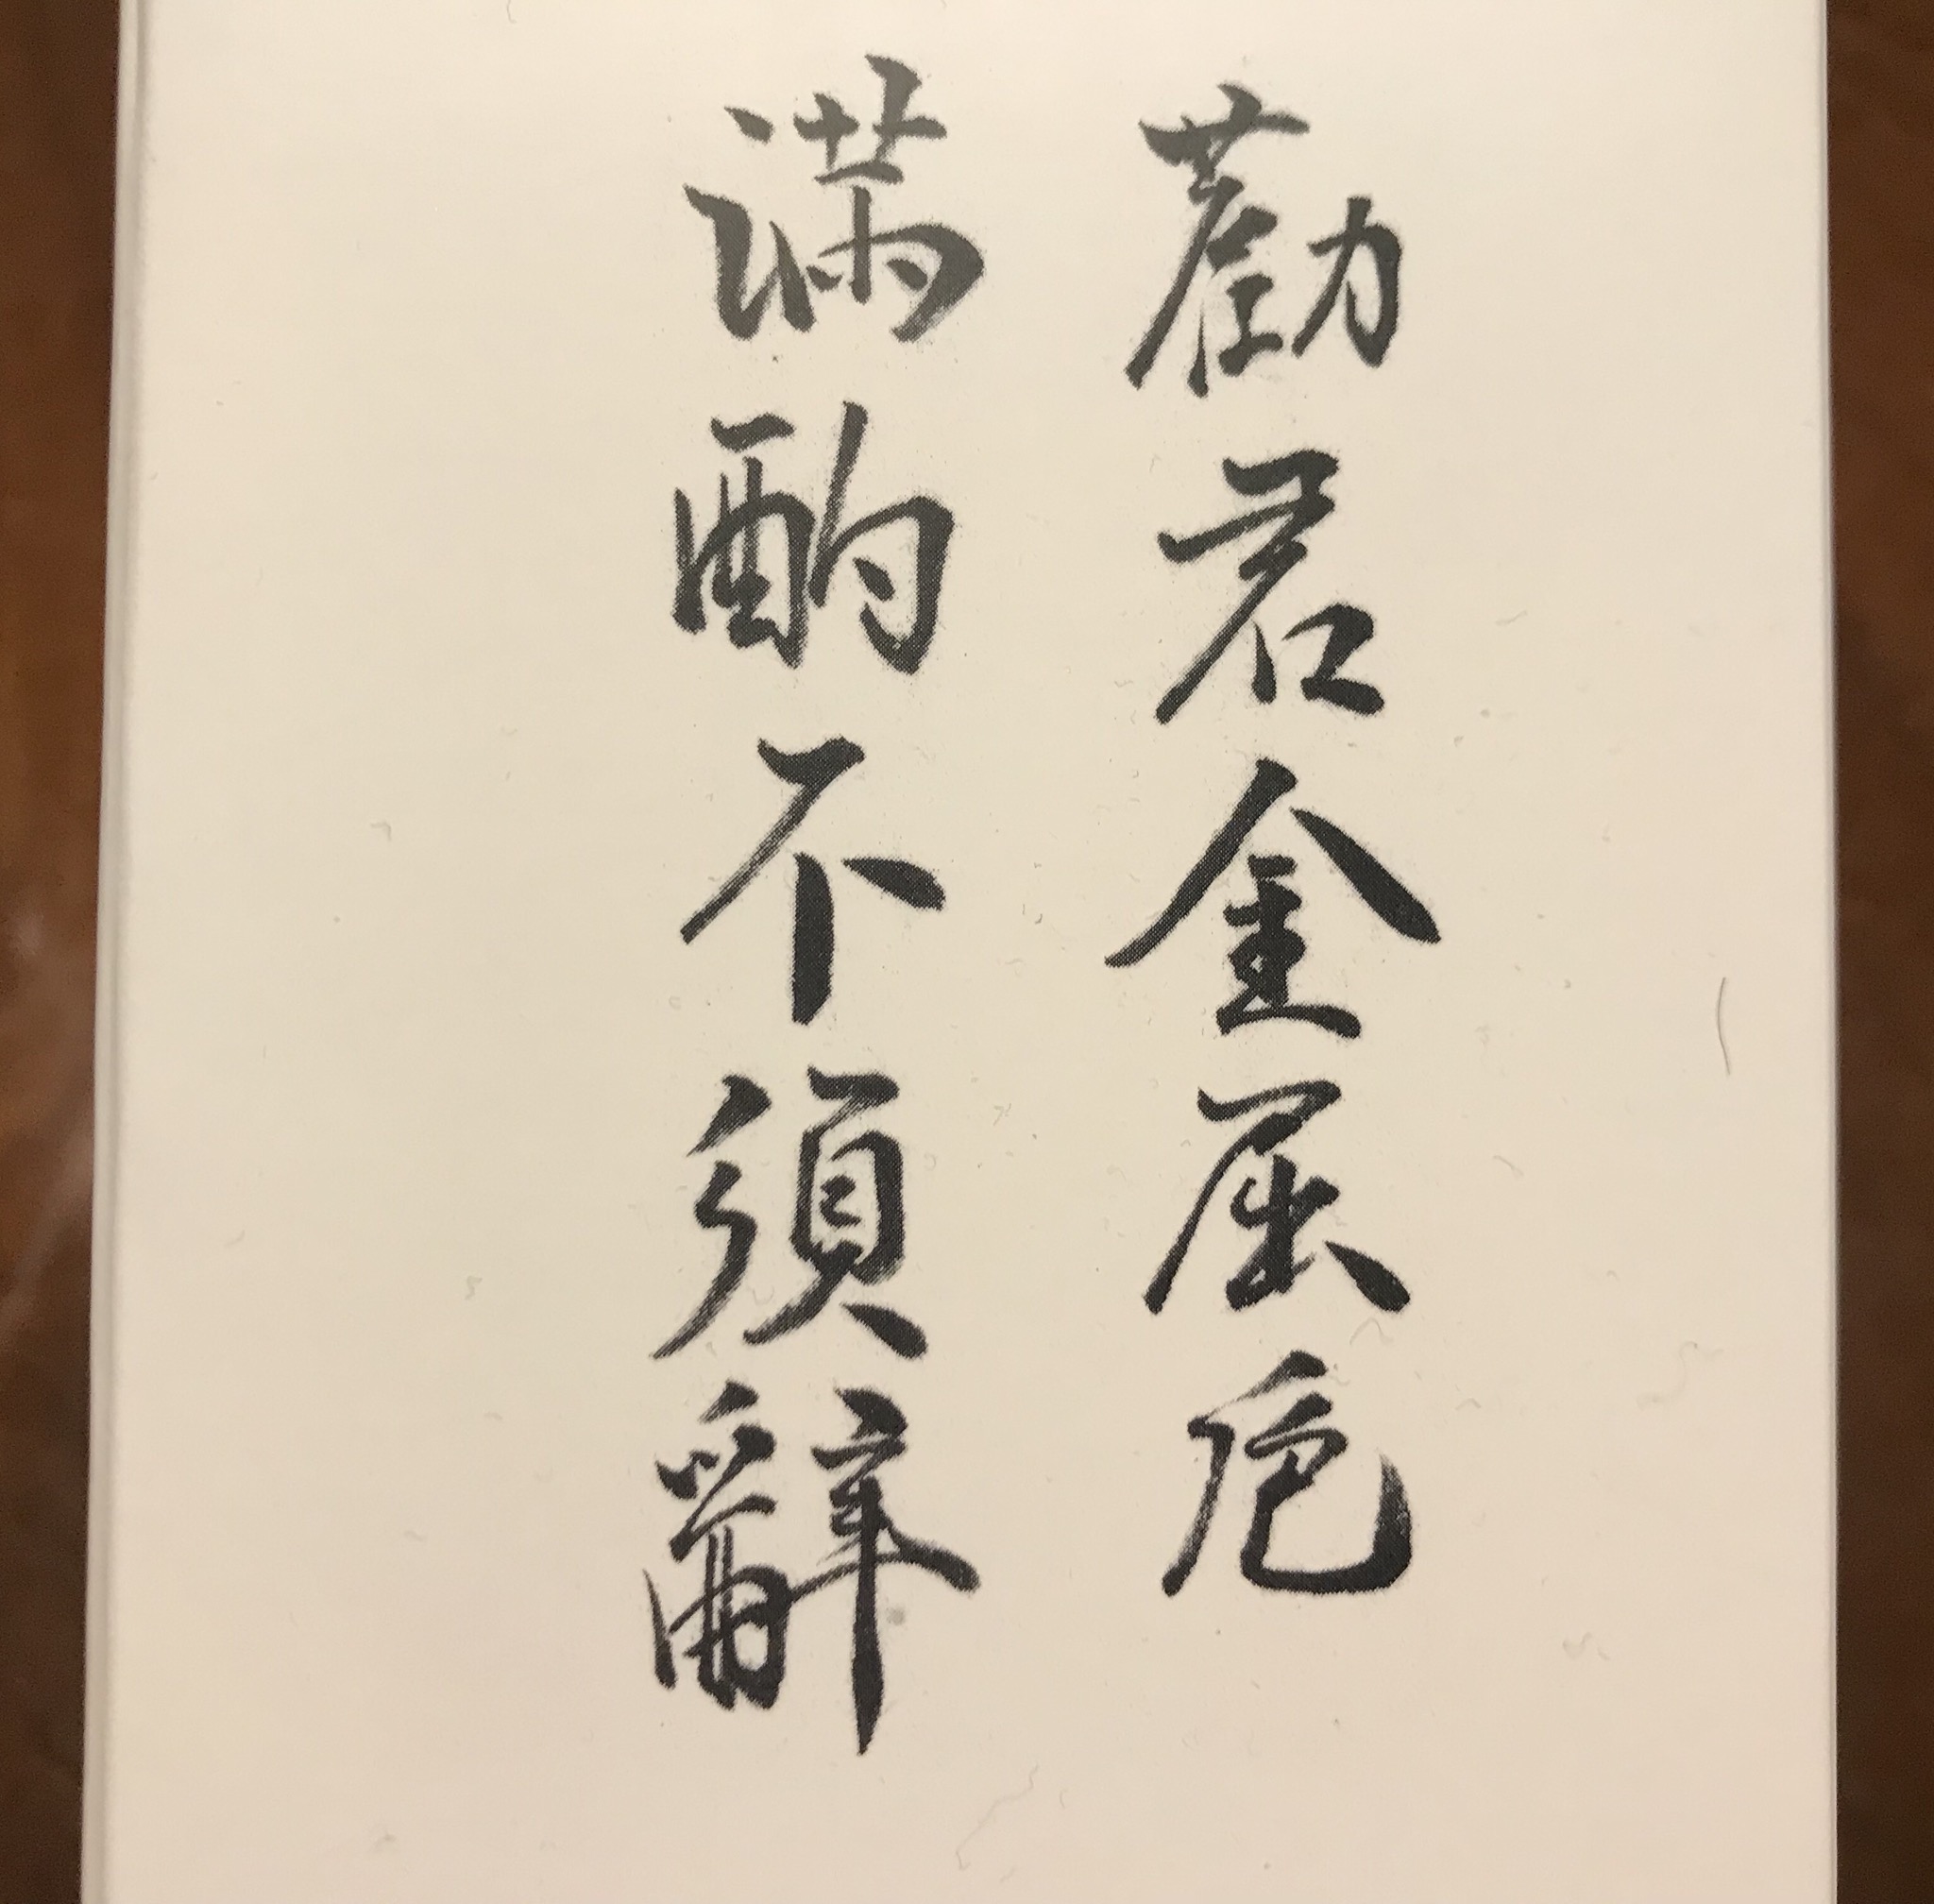 勸君金屈卮
満酌不須辭